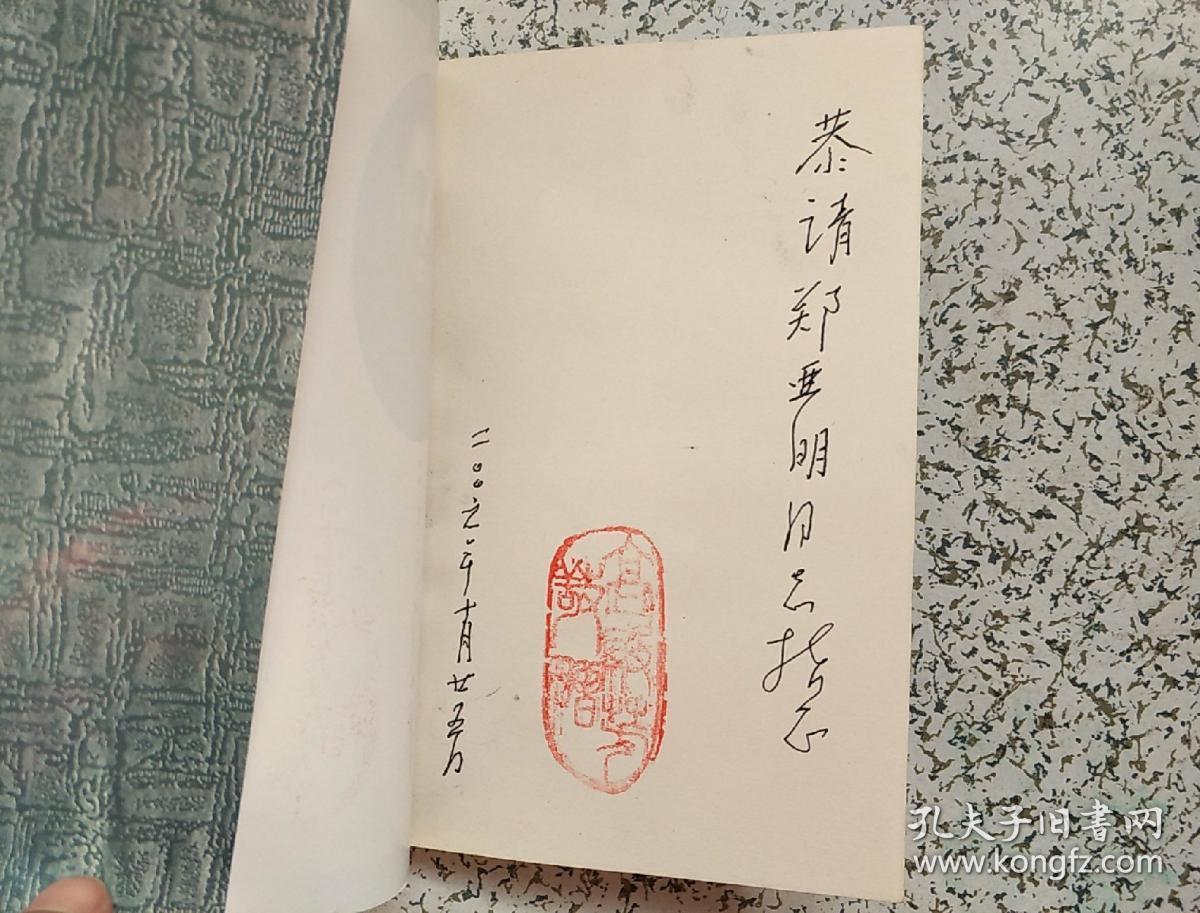 恭请郑亚明同志指正
二〇〇六年十月廿五日
孔夫子旧書网
www.kongfz.com